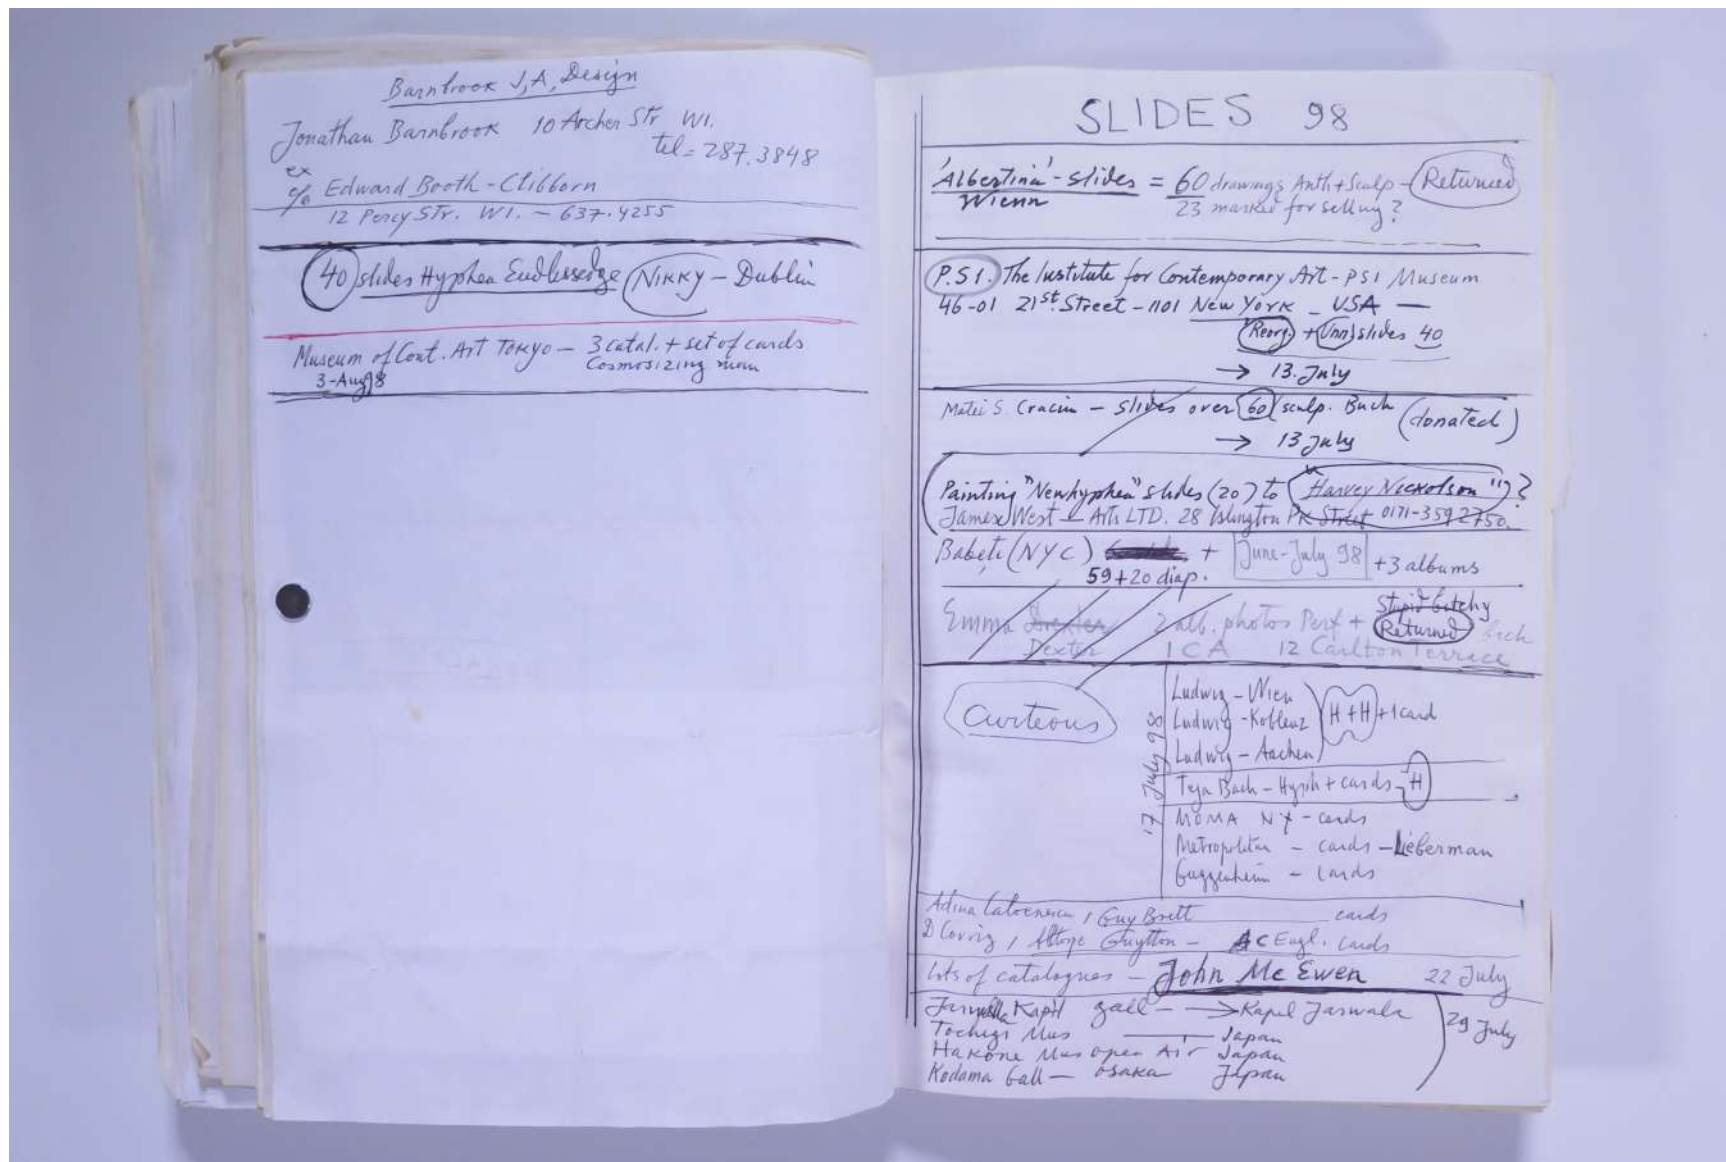 Barnbrook J, A, Design
Jonathan Barnbrook 10 Archer Str W1.
tel = 287.3848
ex
c/o Edward Booth-Clibborn
12 Percy STr. W1. – 637.4255
40 slides Hyphen Endlessedge NIKKY – Dublin
Museum of Cont. Art Tokyo – 3 catal. + set of cards
3-Aug 98 Cosmosizing man
SLIDES 98
'Albertina' - slides = 60 drawings Anth + Sculp – Returned
Wienn 23 marked for selling?
P.S1. The Institute for Contemporary Art - PS1 Museum
46-01 21st. Street – 1101 New York – USA –
Reorg. + Unn) slides 40
→ 13. July
Matei S Craciun – slides over 60 sculp. Buch (donated)
→ 13 July
Painting "Newhyphen" slides (20) to Harvey Nickolson")?
James West – Arts LTD. 28 Islington PK Street 0171-359 2750.
Babeti (NYC) + June-July 98 + 3 albums
59 + 20 diap.
Stupid bitchy
Emma Drexter 2 alb. photos Perf + Returned
Dexter ICA 12 Carlton Terrace
Curteous
17 July 98
Ludwig – Wien
Ludwig – Koblenz H + H + 1 card
Ludwig – Aachen
Teja Bach – Hyph + cards – H
MOMA NY – cards
Metropolitan – cards – Lieberman
Guggenheim – cards
Adina , Guy Brett cards
D , Guytton – AC Engl. cards
Lots of catalogues – John Mc Ewen 22 July
Kapil gall – → Kapil Jarwala
29 July
Tochigi Mus – Japan
Hakone Mus open Air Japan
Kodama Gall – Osaka Japan